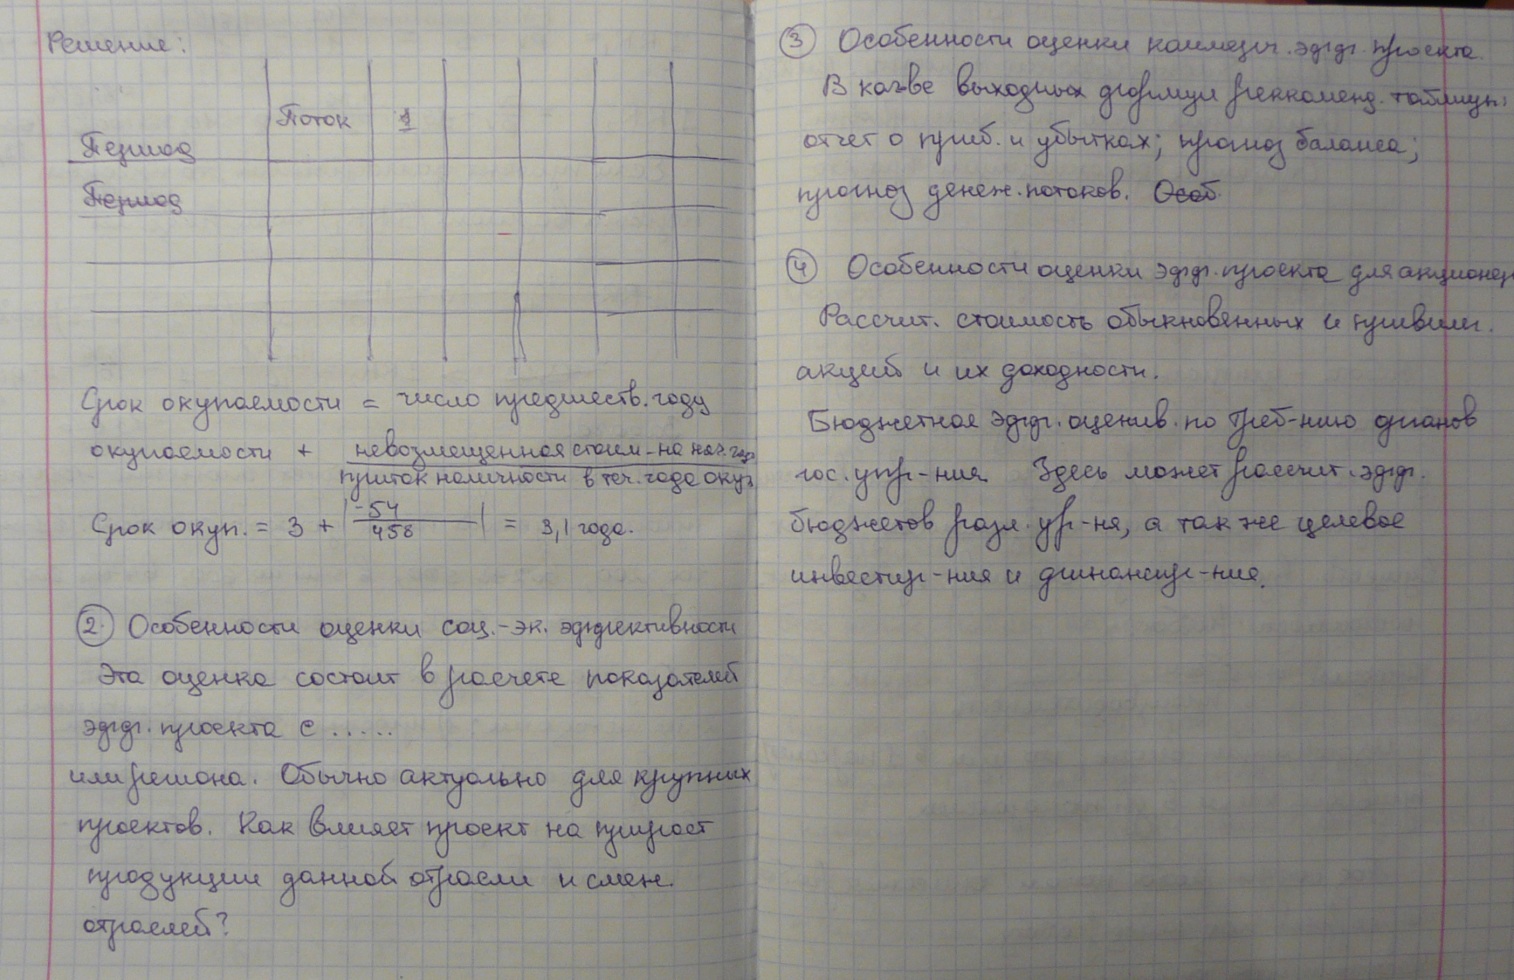 Решение:
Поток 1
Период
Период
Срок окупаемости = число предшеств. году
окупаемости + невозмещенная стоим-на нач. год
приток наличности в теч. года окуп
Срок окуп. = 3 + |-54
458| = 3,1 года.
2. Особенности оценки соц.-эк. эффективности
Эта оценка состоит в расчете показателей
эфф. проекта с .....
или региона. Обычно актуально для крупных
проектов. Как влияет проект на прирост
продукции данной отрасли и смеж.
отраслей?
3 Особенности оценки коммерч. эфф. проекта.
В кач-ве выходных формул реккоменд. таблицы:
отчет о приб. и убытках; прогноз баланса;
прогноз денеж. потоков. Особ.
4 Особенности оценки эфф. проекта для акционер
Рассчит. стоимость обыкновенных и привилег.
акций и их доходности.
Бюджетная эфф. оценив. по треб-нию органов
гос. упр-ния. Здесь может рассчит. эфф.
бюджетов разл. ур-ня, а так же целевое
инвестир-ния и финансир-ние.